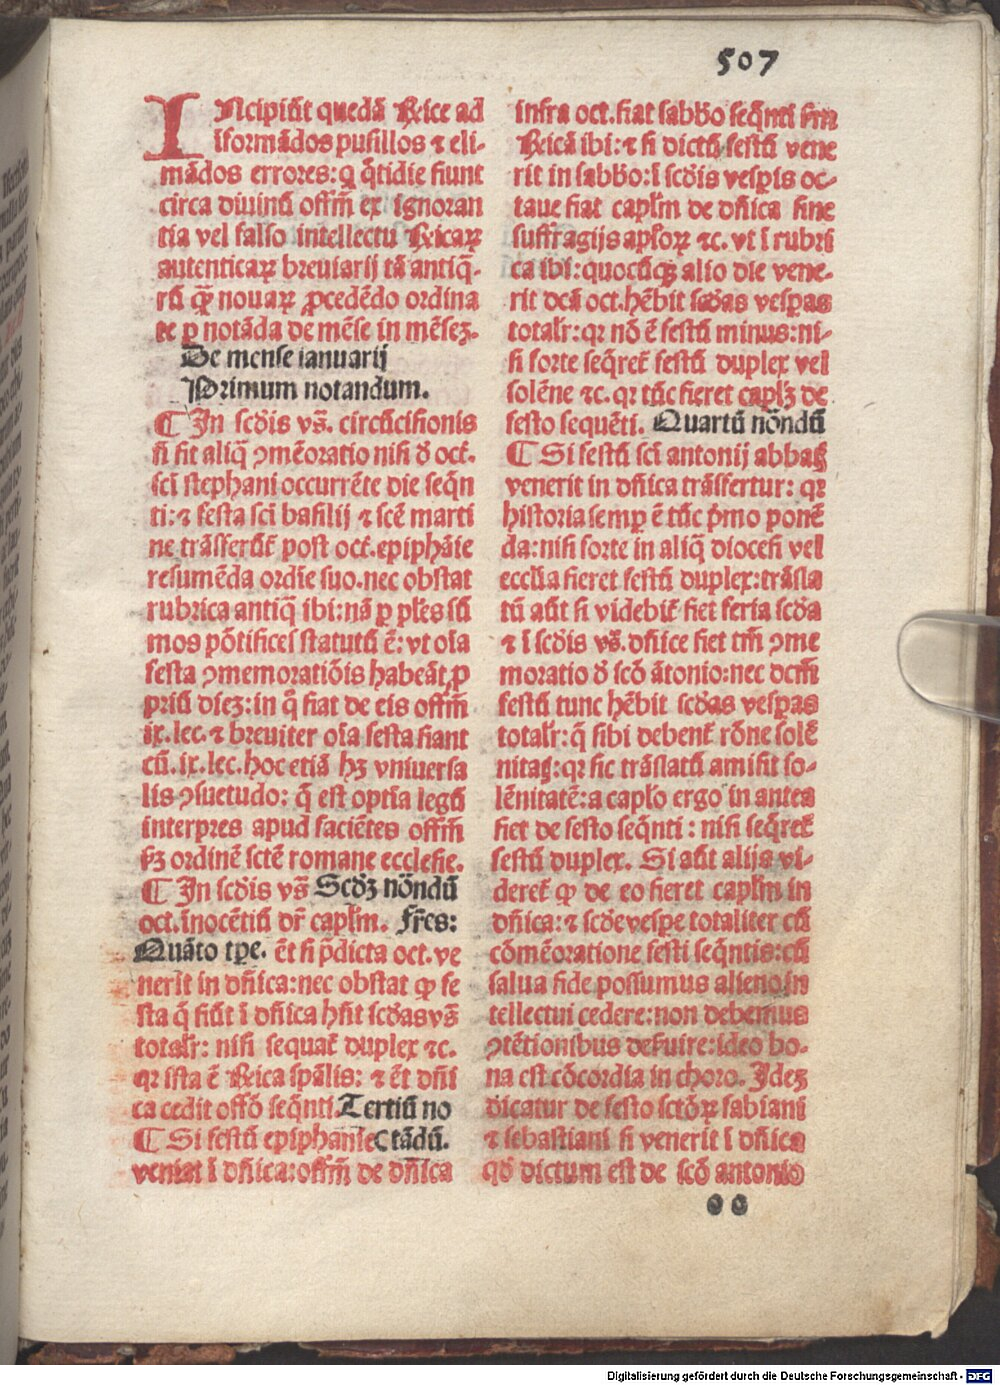 507
INcipiūt quedā Rƀice ad
iformādos pusillos ⁊ eli-
mādos errores: q̄ q̄tidie fiunt
circa diuinū offm̄ ex ignoran
tia vel falso intellectu Rƀicaꝝ
autenticaꝝ breuiarij tā antiq̄-
rū qꝫ̄ nouaꝝ ꝓcedēdo ordina
te ꝑ notāda de mēse in mēseꝫ.
De mense ianuarij
Primum notandum.
¶ In scd̄is vs̄. circūcisionis
nō fit aliq̄ ꝯmēoratio nisi ð oct̄.
sci̅ stephani occurrēte die seq̄n
ti: ⁊ festa sci̅ basilij ⁊ scē marti
ne trāsferūt̄ post oct̄. epiphāie
resumēda ordīe suo. nec obstat
rubrica antiq̄ ibi: nā ꝑ pl̄es sū
mos pōtifices statutū ē: vt oīa
festa ꝯmemoratiōis habeāt ꝓ
priū dieꝫ: in q̄ fiat de eis offm̄
ix. lec. ⁊ breuiter oīa festa fiant
cū. ix. lec. hoc etiā hꝫ vniuersa
lis ꝯsuetudo: q̄ est optīa legū
interpres apud faciētes offm̄
ẜm ordinē scтē romane ecclesie.
¶ In scd̄is vs̄ Scd̄ꝫ nōndū
oct. īnocētiū dr̄ capl̄m. Fr̄es:
Quāto tp̄e. ēt si p̄dicta oct. ve
nerit in dn̄ica: nec obstat ꝙ fe
sta q̄ fiūt ī dn̄ica hn̄t scd̄as vs̄
totalr̄: nisi sequat̄ duplex ⁊c.
qꝛ ista ē Rƀica sp̄alis: ⁊ ēt dn̄i
ca cedit offō seq̄nti. Tertiū no
¶ Si festū epiphanie ( tādū.
veniat ī dn̄ica: offm̄ de dn̄ica
infra oct. fiat sabƀo seq̄nti ẜm
Rƀicā ibi: ⁊ si dictū festū vene
rit in sabƀo: ī scd̄is vesꝑis oc-
taue fiat capl̄m de dn̄ica sine
suffragijs apl̄oꝝ ⁊c. vt ī rubri
ca ibi: quocūqꝫ alio die vene-
rit dc̄a oct. hēbit scd̄as vesꝑas
totalr̄: qꝛ nō ē festū minus: ni-
si forte seq̄ret̄ festū duplex vel
solēne ⁊c. qꝛ tūc fieret capl̄ꝫ de
festo sequēti. Quartū nōndū
¶ Si festū sci̅ antonij abbatꝭ
venerit in dn̄ica trāsfertur: qꝛ
historia semꝑ ē tūc p̄mo ponē
da: nisi forte in aliq̄ diocesi vel
ecclīa fieret festū duplex: trāsla
tū aūt si videbit̄ fiet feria scd̄a
⁊ ī scd̄is vs̄. dn̄ice fiet tm̄ ꝯme
moratio ð scō ātonio: nec dcm̄
festū tunc hēbit scd̄as vesꝑas
totalr̄: q̄ sibi debent̄ rōne solē
nitatꝭ: qꝛ sic trāslatū amisit so-
lēnitatē: a capl̄o ergo in antea
fiet de festo seq̄nti: nisi seq̄ret̄
festū duplex. Si aūt alijs vi-
deret̄ ꝙ de eo fieret capl̄m in
dn̄ica: ⁊ scd̄e vesꝑe totaliter cū
cōmēoratione festi seq̄ntis: cū
salua fide possumus alieno in
tellectui cedere: non debemus
ꝯtētionibus deẜuire: ideo bo-
na est cōcordia in choro. Ideꝫ
dicatur de festo sctōꝝ fabiani
⁊ sebastiani si venerit ī dn̄ica
qð dictum est de scō antonio
Digitalisierung gefördert durch die Deutsche Forschungsgemeinschaft - DFG